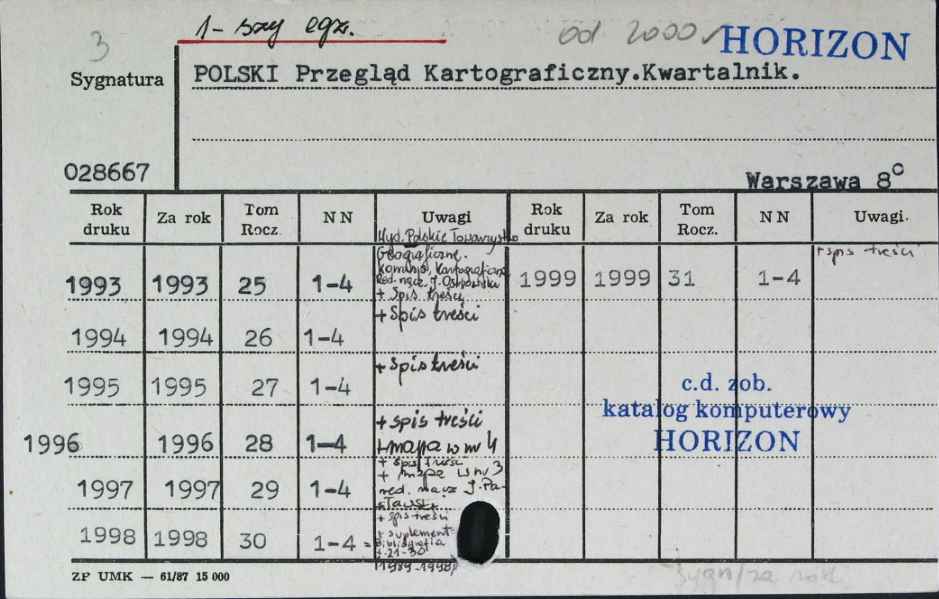 3
1-szy egz.
od 2000
HORIZON
Sygnatura
POLSKI Przegląd Kartograficzny.Kwartalnik.
028667
Warszawa 8°
Rok druku Za rok Tom Rocz. NN Uwagi Rok druku Za rok Tom Rocz. NN Uwagi.
Wyd. Polskie Towarzystwo
Geograficzne.
Komisja Kartograficzna
Red. nacz. J. Ostrowski
1993 1993 25 1-4 + Spis treści
1999 1999 31 1-4 + spis treści
1994 1994 26 1-4 + Spis treści
1995 1995 27 1-4 + Spis treści
c.d. zob.
katalog komputerowy
HORIZON
1996 1996 28 1-4 + spis treści
+ mapa w nr 4
1997 1997 29 1-4 + spis treści
+ mapa w nr 3
red. nacz J. Pa-
sławski
1998 1998 30 1-4 + spis treści
+ suplement
Bibliografia
t. 21-30
(1989-1998)
ZP UMK — 61/87 15 000
Sygn/za rok